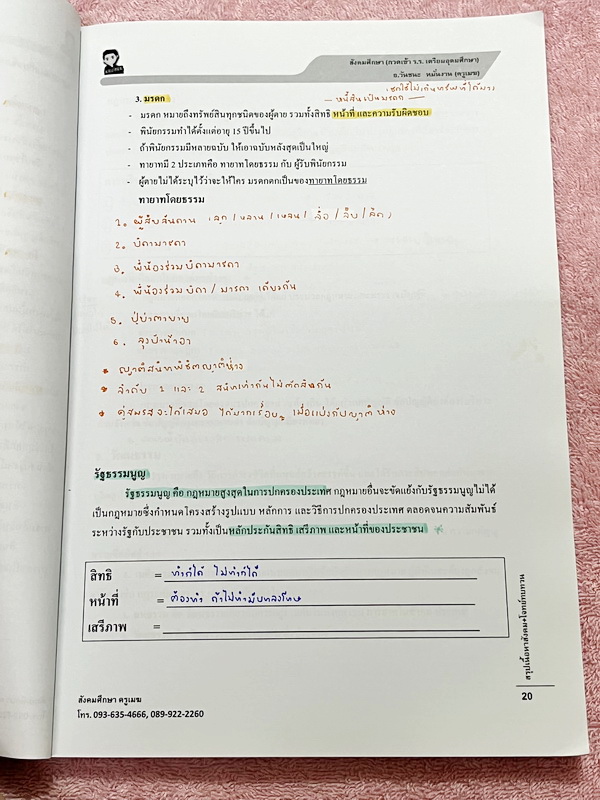 สังคมศึกษา (กวดเข้า ร.ร. เตรียมอุดมศึกษา)
อ.วันชนะ หมั่นงาน (ครูเมฆ)
3. มรดก
— หนี้สินเป็นมรดก —
- มรดก หมายถึงทรัพย์สินทุกชนิดของผู้ตาย รวมทั้งสิทธิ หน้าที่ และความรับผิดชอบ
- พินัยกรรมทำได้ตั้งแต่อายุ 15 ปีขึ้นไป
- ถ้าพินัยกรรมมีหลายฉบับ ให้เอาฉบับหลังสุดเป็นใหญ่
- ทายาทมี 2 ประเภทคือ ทายาทโดยธรรม กับ ผู้รับพินัยกรรม
- ผู้ตายไม่ได้ระบุไว้ว่าจะให้ใคร มรดกตกเป็นของทายาทโดยธรรม
ทายาทโดยธรรม
1. ผู้สืบสันดาน (ลูก / หลาน / เหลน / ลื่อ / ลืบ / ลืด)
2. บิดามารดา
3. พี่น้องร่วมบิดามารดา
4. พี่น้องร่วมบิดา / มารดา เดียวกัน
5. ปู่ย่าตายาย
6. ลุงป้าน้าอา
* ญาติสนิทพิชิตญาติห่าง
* ลำดับ 1 และ 2 สนิทเท่ากันไม่ตัดสินกัน
* คู่สมรสจะได้เสมอ ได้มากเรื่อยๆ เมื่อแบ่งกับญาติห่าง
รัฐธรรมนูญ
รัฐธรรมนูญ คือ กฎหมายสูงสุดในการปกครองประเทศ กฎหมายอื่นจะขัดแย้งกับรัฐธรรมนูญไม่ได้
เป็นกฎหมายซึ่งกำหนดโครงสร้างรูปแบบ หลักการ และวิธีการปกครองประเทศ ตลอดจนความสัมพันธ์
ระหว่างรัฐกับประชาชน รวมทั้งเป็นหลักประกันสิทธิ เสรีภาพ และหน้าที่ของประชาชน *
สิทธิ = ทำก็ได้ ไม่ทำก็ได้
หน้าที่ = ต้องทำ ถ้าไม่ทำมีบทลงโทษ
เสรีภาพ =
สรุปเนื้อหาสังคม+โจทย์ทบทวน
20
สังคมศึกษา ครูเมฆ
โทร. 093-635-4666, 089-922-2260